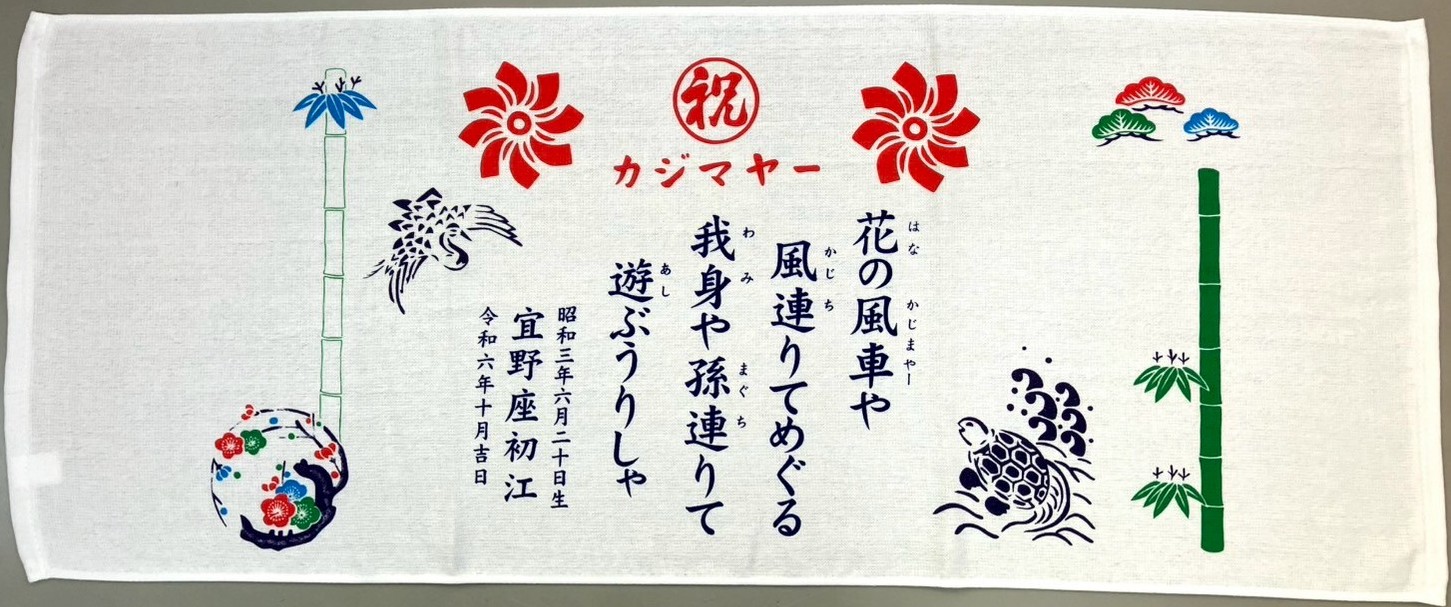 祝
カジマヤー
花の風車や
風連りてめぐる
我身や孫連りて
遊ぶうりしゃ
昭和三年六月二十日生
宜野座初江
令和六年十月吉日
はな かじまやー
かじ ち
わ み まぐ ち
あし